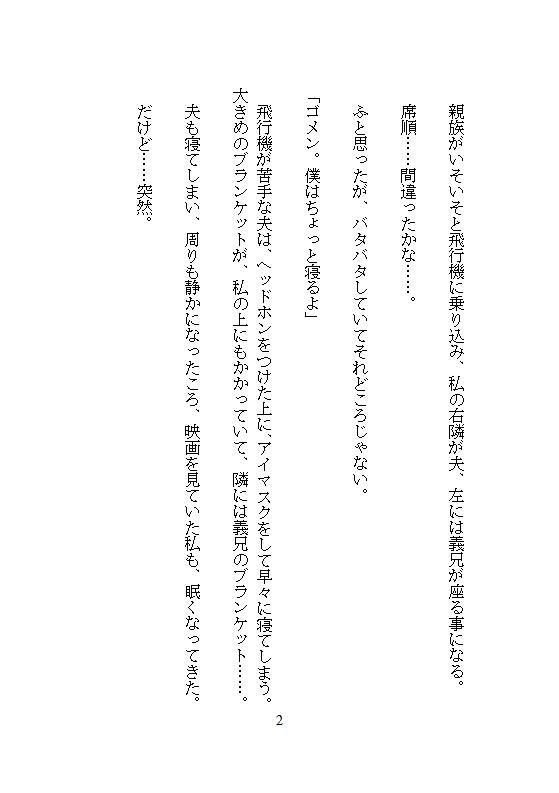 親族がいそいそと飛行機に乗り込み、私の右隣が夫、左には義兄が座る事になる。
席順……間違ったかな……。
ふと思ったが、バタバタしていてそれどころじゃない。
「ゴメン。僕はちょっと寝るよ」
飛行機が苦手な夫は、ヘッドホンをつけた上に、アイマスクをして早々に寝てしまう。
大きめのブランケットが、私の上にもかかっていて、隣には義兄のブランケット……。
夫も寝てしまい、周りも静かになったころ、映画を見ていた私も、眠くなってきた。
だけど……突然。
2